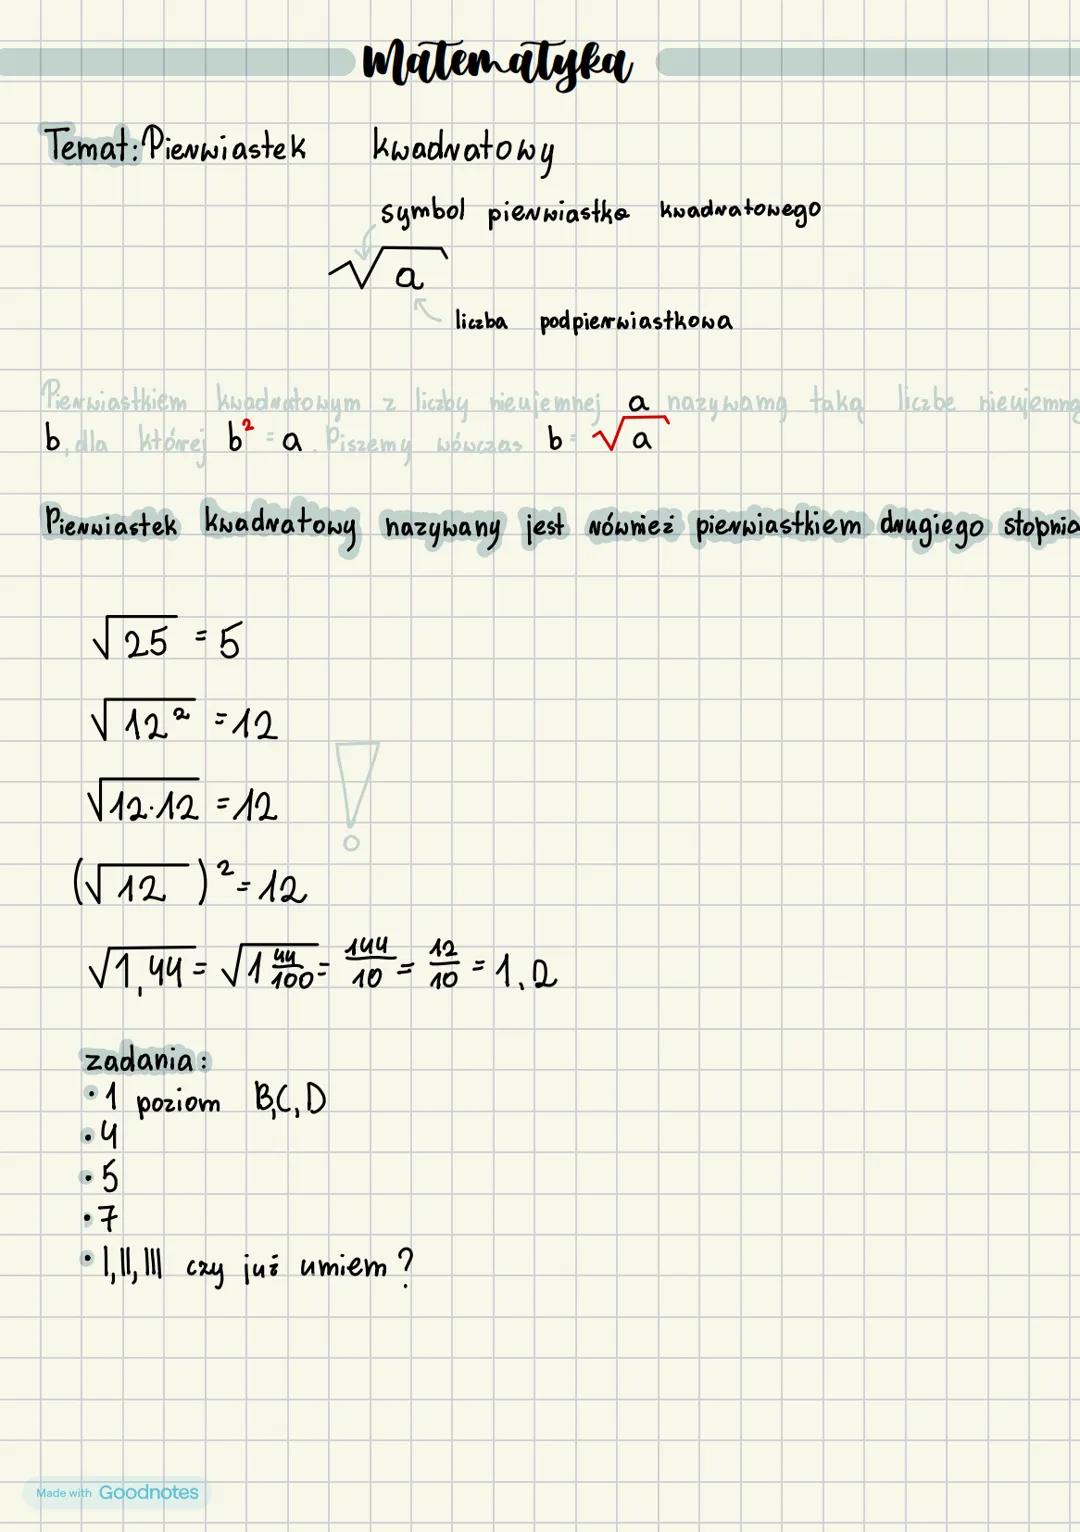 Matematyka
Temat: Pierwiastek kwadratowy
symbol pierwiastka kwadratowego
√a
liczba podpierwiastkowa
Pierwiastkiem kwadratowym z liczby nieujemnej a nazywamy taką liczbe nieujemną
b, dla której b² = a. Piszemy wówczas b = √a
Pierwiastek kwadratowy nazywany jest również pierwiastkiem drugiego stopnia
√25 = 5
√12² = 12
√12·12 = 12
!
(√12)² = 12
√1,44 = √1 44/100 = 144/10 = 12/10 = 1,2
zadania:
• 1 poziom B,C,D
• 4
• 5
• 7
• I, II, III czy już umiem?
Made with Goodnotes